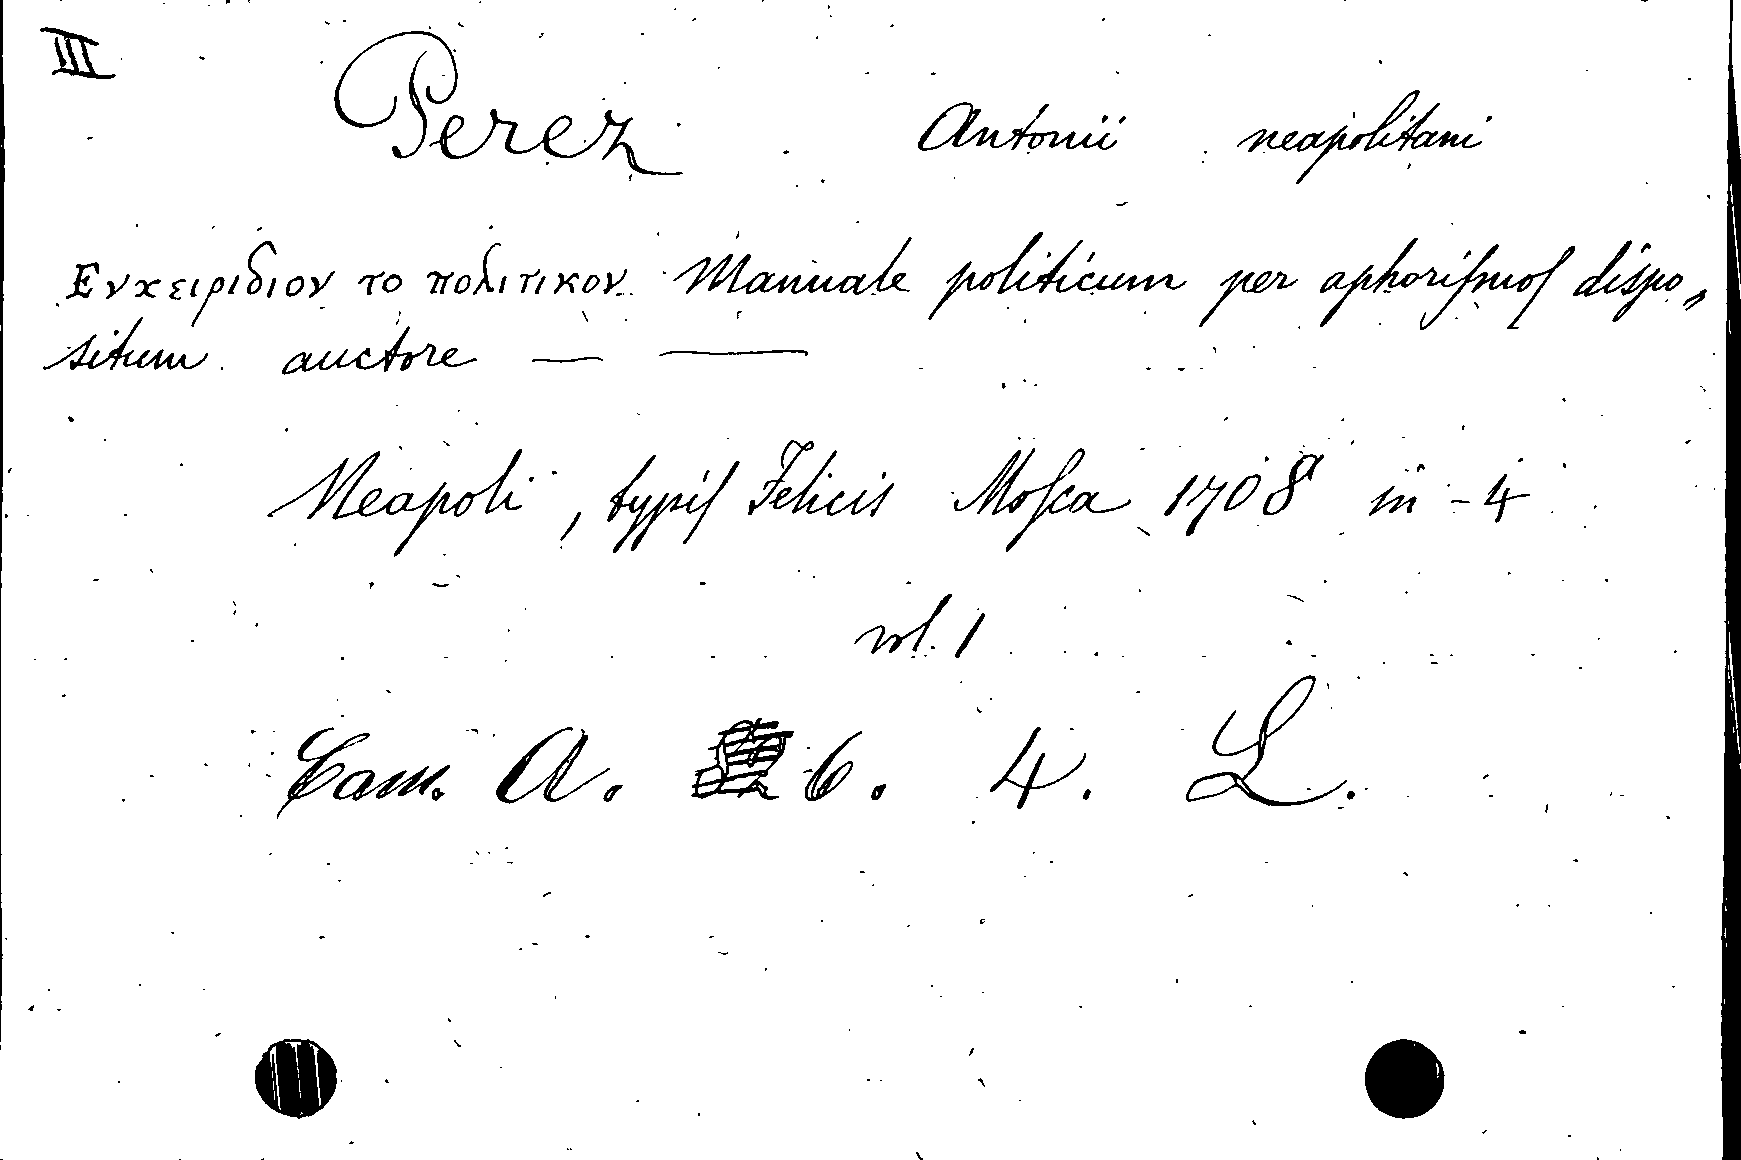 III
Perez Antonii neapolitani
Ενχειριδιον το πολιτικον Manuale politicum per aphoriſmoſ dispo„
situm auctore — —
Neapoli, typiſ Felicis Moſca 1708 in-4
vol. 1
Cam. A. 6. 4. L.